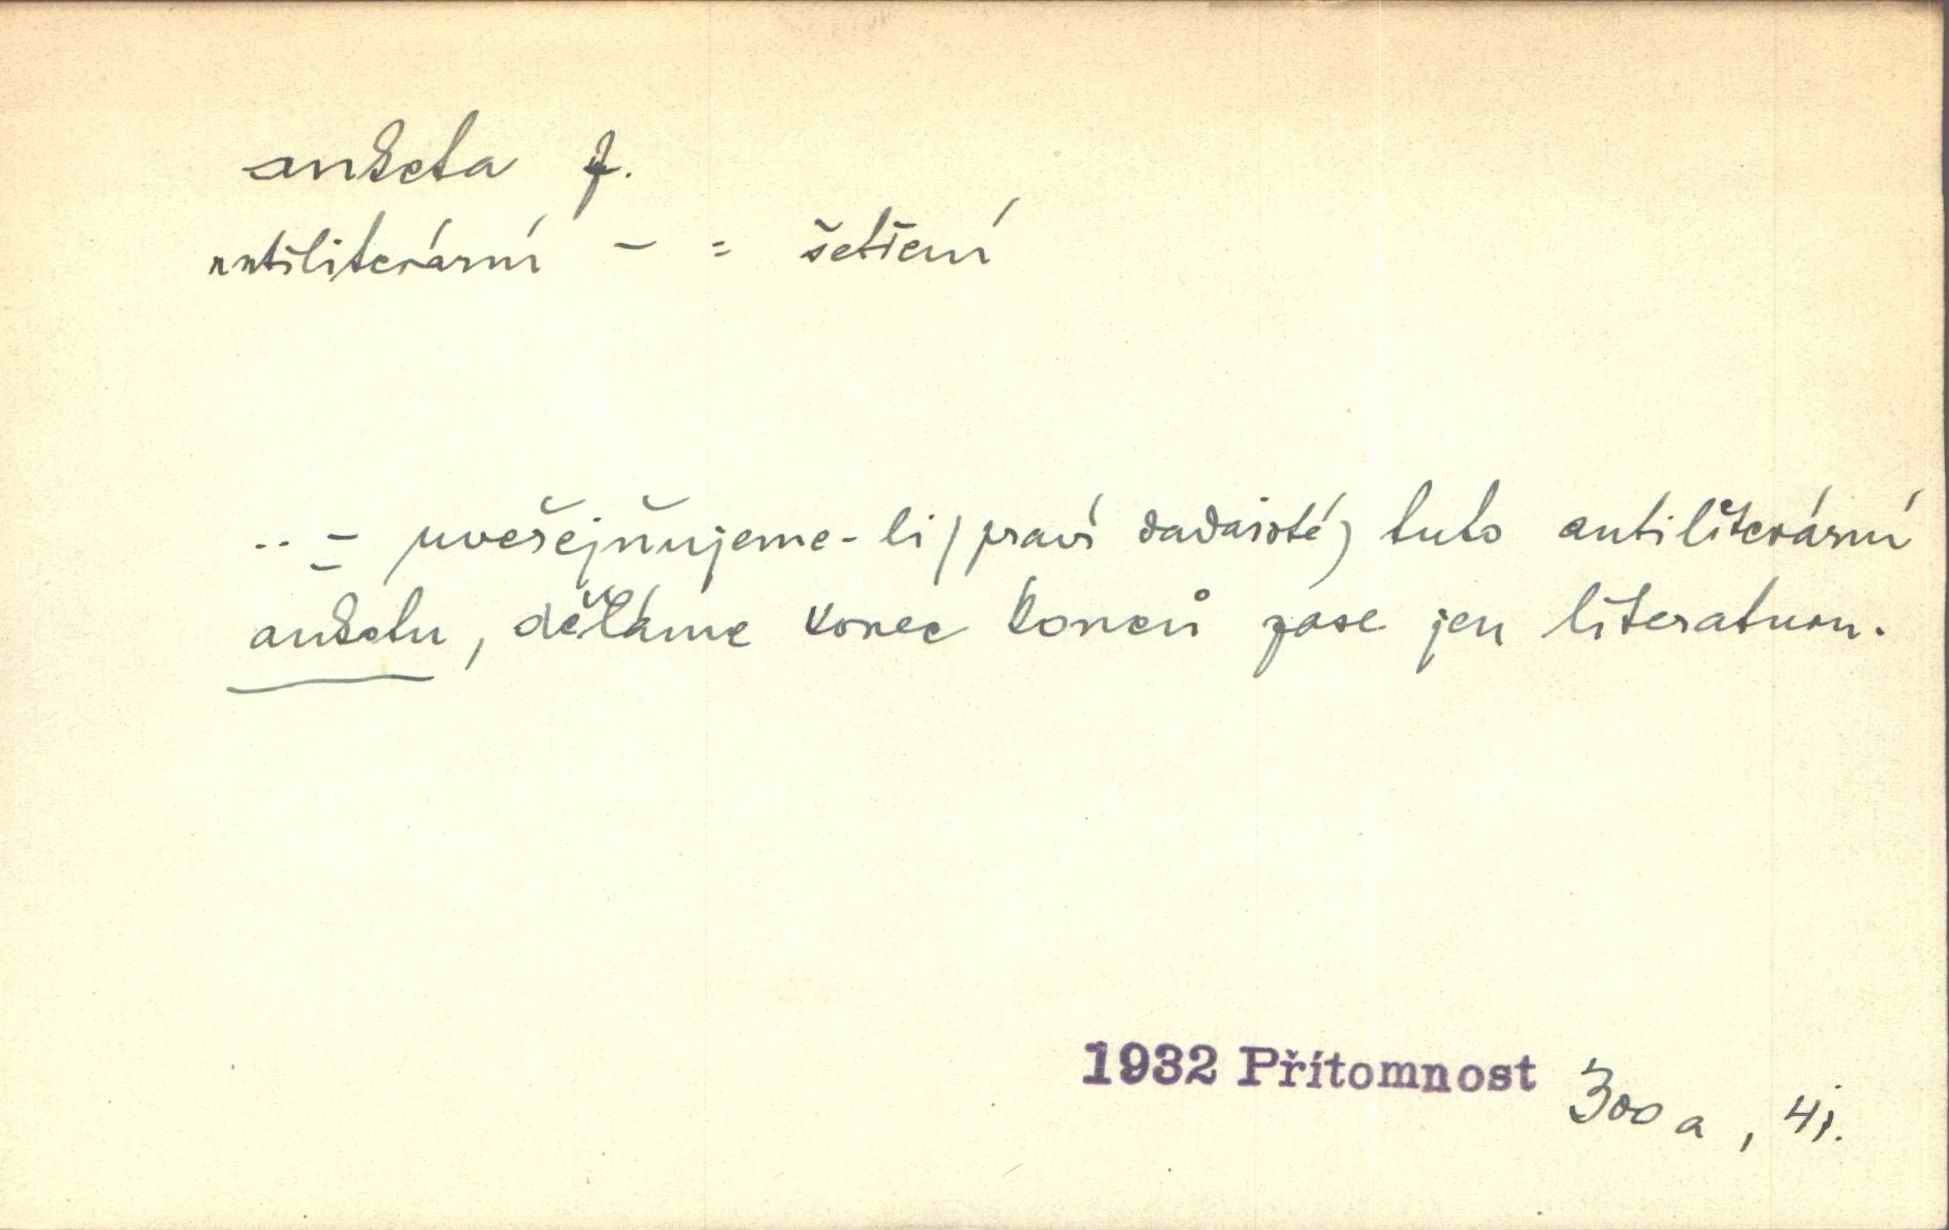 anketa f.
antiliterární – = šetření
.. – uveřejňujeme-li (praví dadaisté) tuto antiliterární
anketu, děláme konec konců zase jen literaturu.
1932 Přítomnost 300 a, 4j.